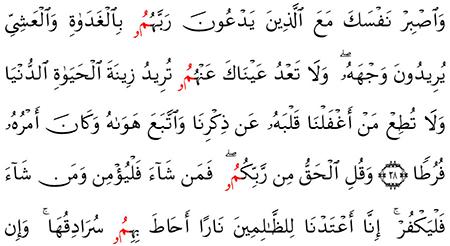 وَٱصۡبِرۡ نَفۡسَكَ مَعَ ٱلَّذِينَ يَدۡعُونَ رَبَّهُمُۥ بِٱلۡغَدَوٰةِ وَٱلۡعَشِيِّ
يُرِيدُونَ وَجۡهَهُۥۖ وَلَا تَعۡدُ عَيۡنَاكَ عَنۡهُمُۥ تُرِيدُ زِينَةَ ٱلۡحَيَوٰةِ ٱلدُّنۡيَا
وَلَا تُطِعۡ مَنۡ أَغۡفَلۡنَا قَلۡبَهُۥ عَن ذِكۡرِنَا وَٱتَّبَعَ هَوَىٰهُ وَكَانَ أَمۡرُهُۥ
فُرُطٗا ۝٢٨ وَقُلِ ٱلۡحَقُّ مِن رَّبِّكُمُۥۖ فَمَن شَآءَ فَلۡيُؤۡمِن وَمَن شَآءَ
فَلۡيَكۡفُرۡۚ إِنَّآ أَعۡتَدۡنَا لِلظَّٰلِمِينَ نَارًا أَحَاطَ بِهِمُۥ سُرَادِقُهَاۚ وَإِن